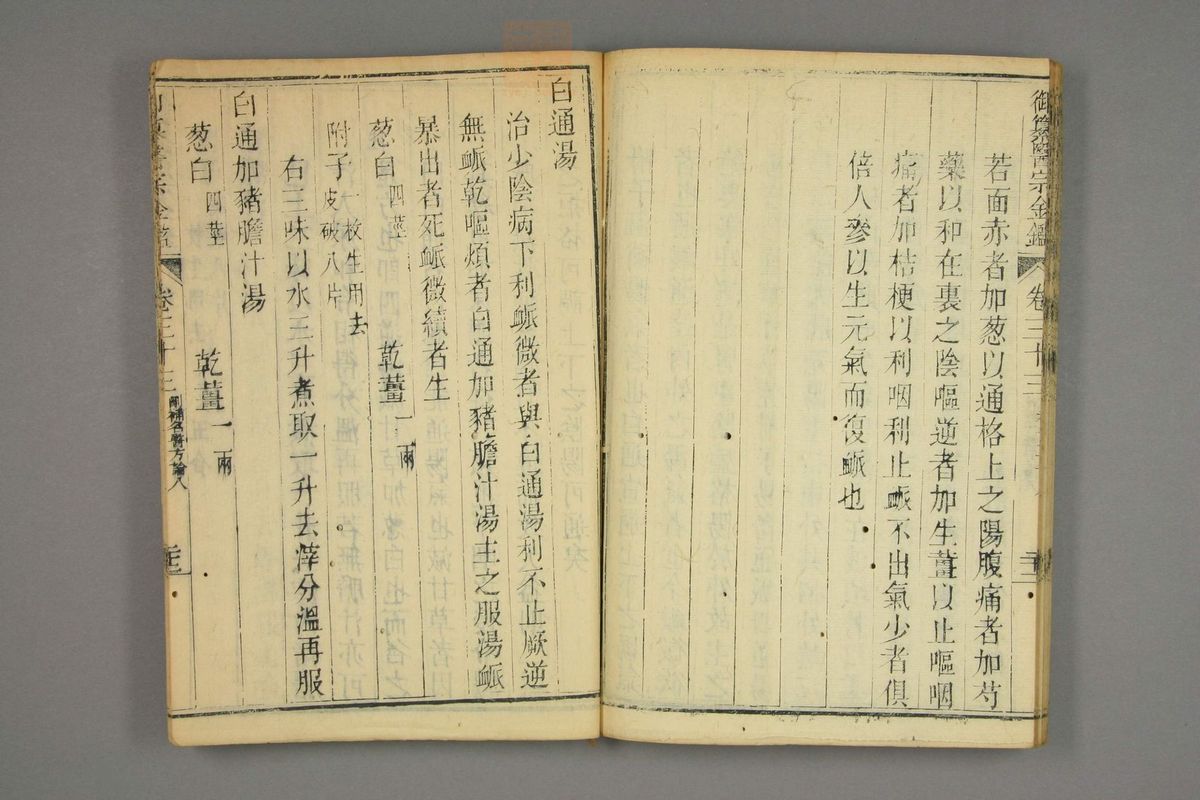 御纂醫宗金鑑 卷三十三
若面赤者加葱以通格上之陽腹痛者加芍
藥以和在裏之陰嘔逆者加生薑以止嘔咽
痛者加桔梗以利咽利止衇不出氣少者俱
倍人參以生元氣而復衇也
白通湯
治少陰病下利衇微者與白通湯利不止厥逆
無衇乾嘔煩者白通加豬膽汁湯主之服湯衇
暴出者死衇微續者生
葱白 四莖 乾薑 一兩
附子 一枚生用去皮破八片
右三味以水三升煮取一升去滓分溫再服
白通加豬膽汁湯
葱白 四莖 乾薑 一兩
卷三十三 刪補名醫方論八